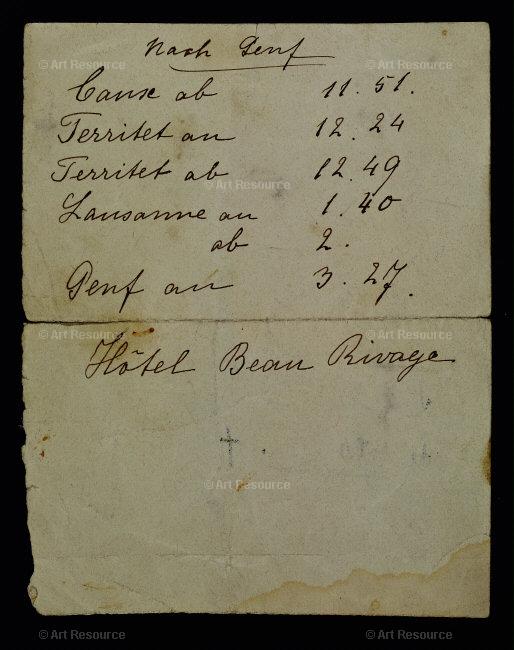 Nach Genf
Caux ab 11.51.
Territet an 12.24
Territet ab 12.49
Lausanne an 1.40
ab 2.
Genf an 3.27.
Hôtel Beau Rivage
© Art Resource
© Art Resource
© Art Resource
© Art Resource
© Art Resource
© Art Resource
© Art Resource
© Art Resource